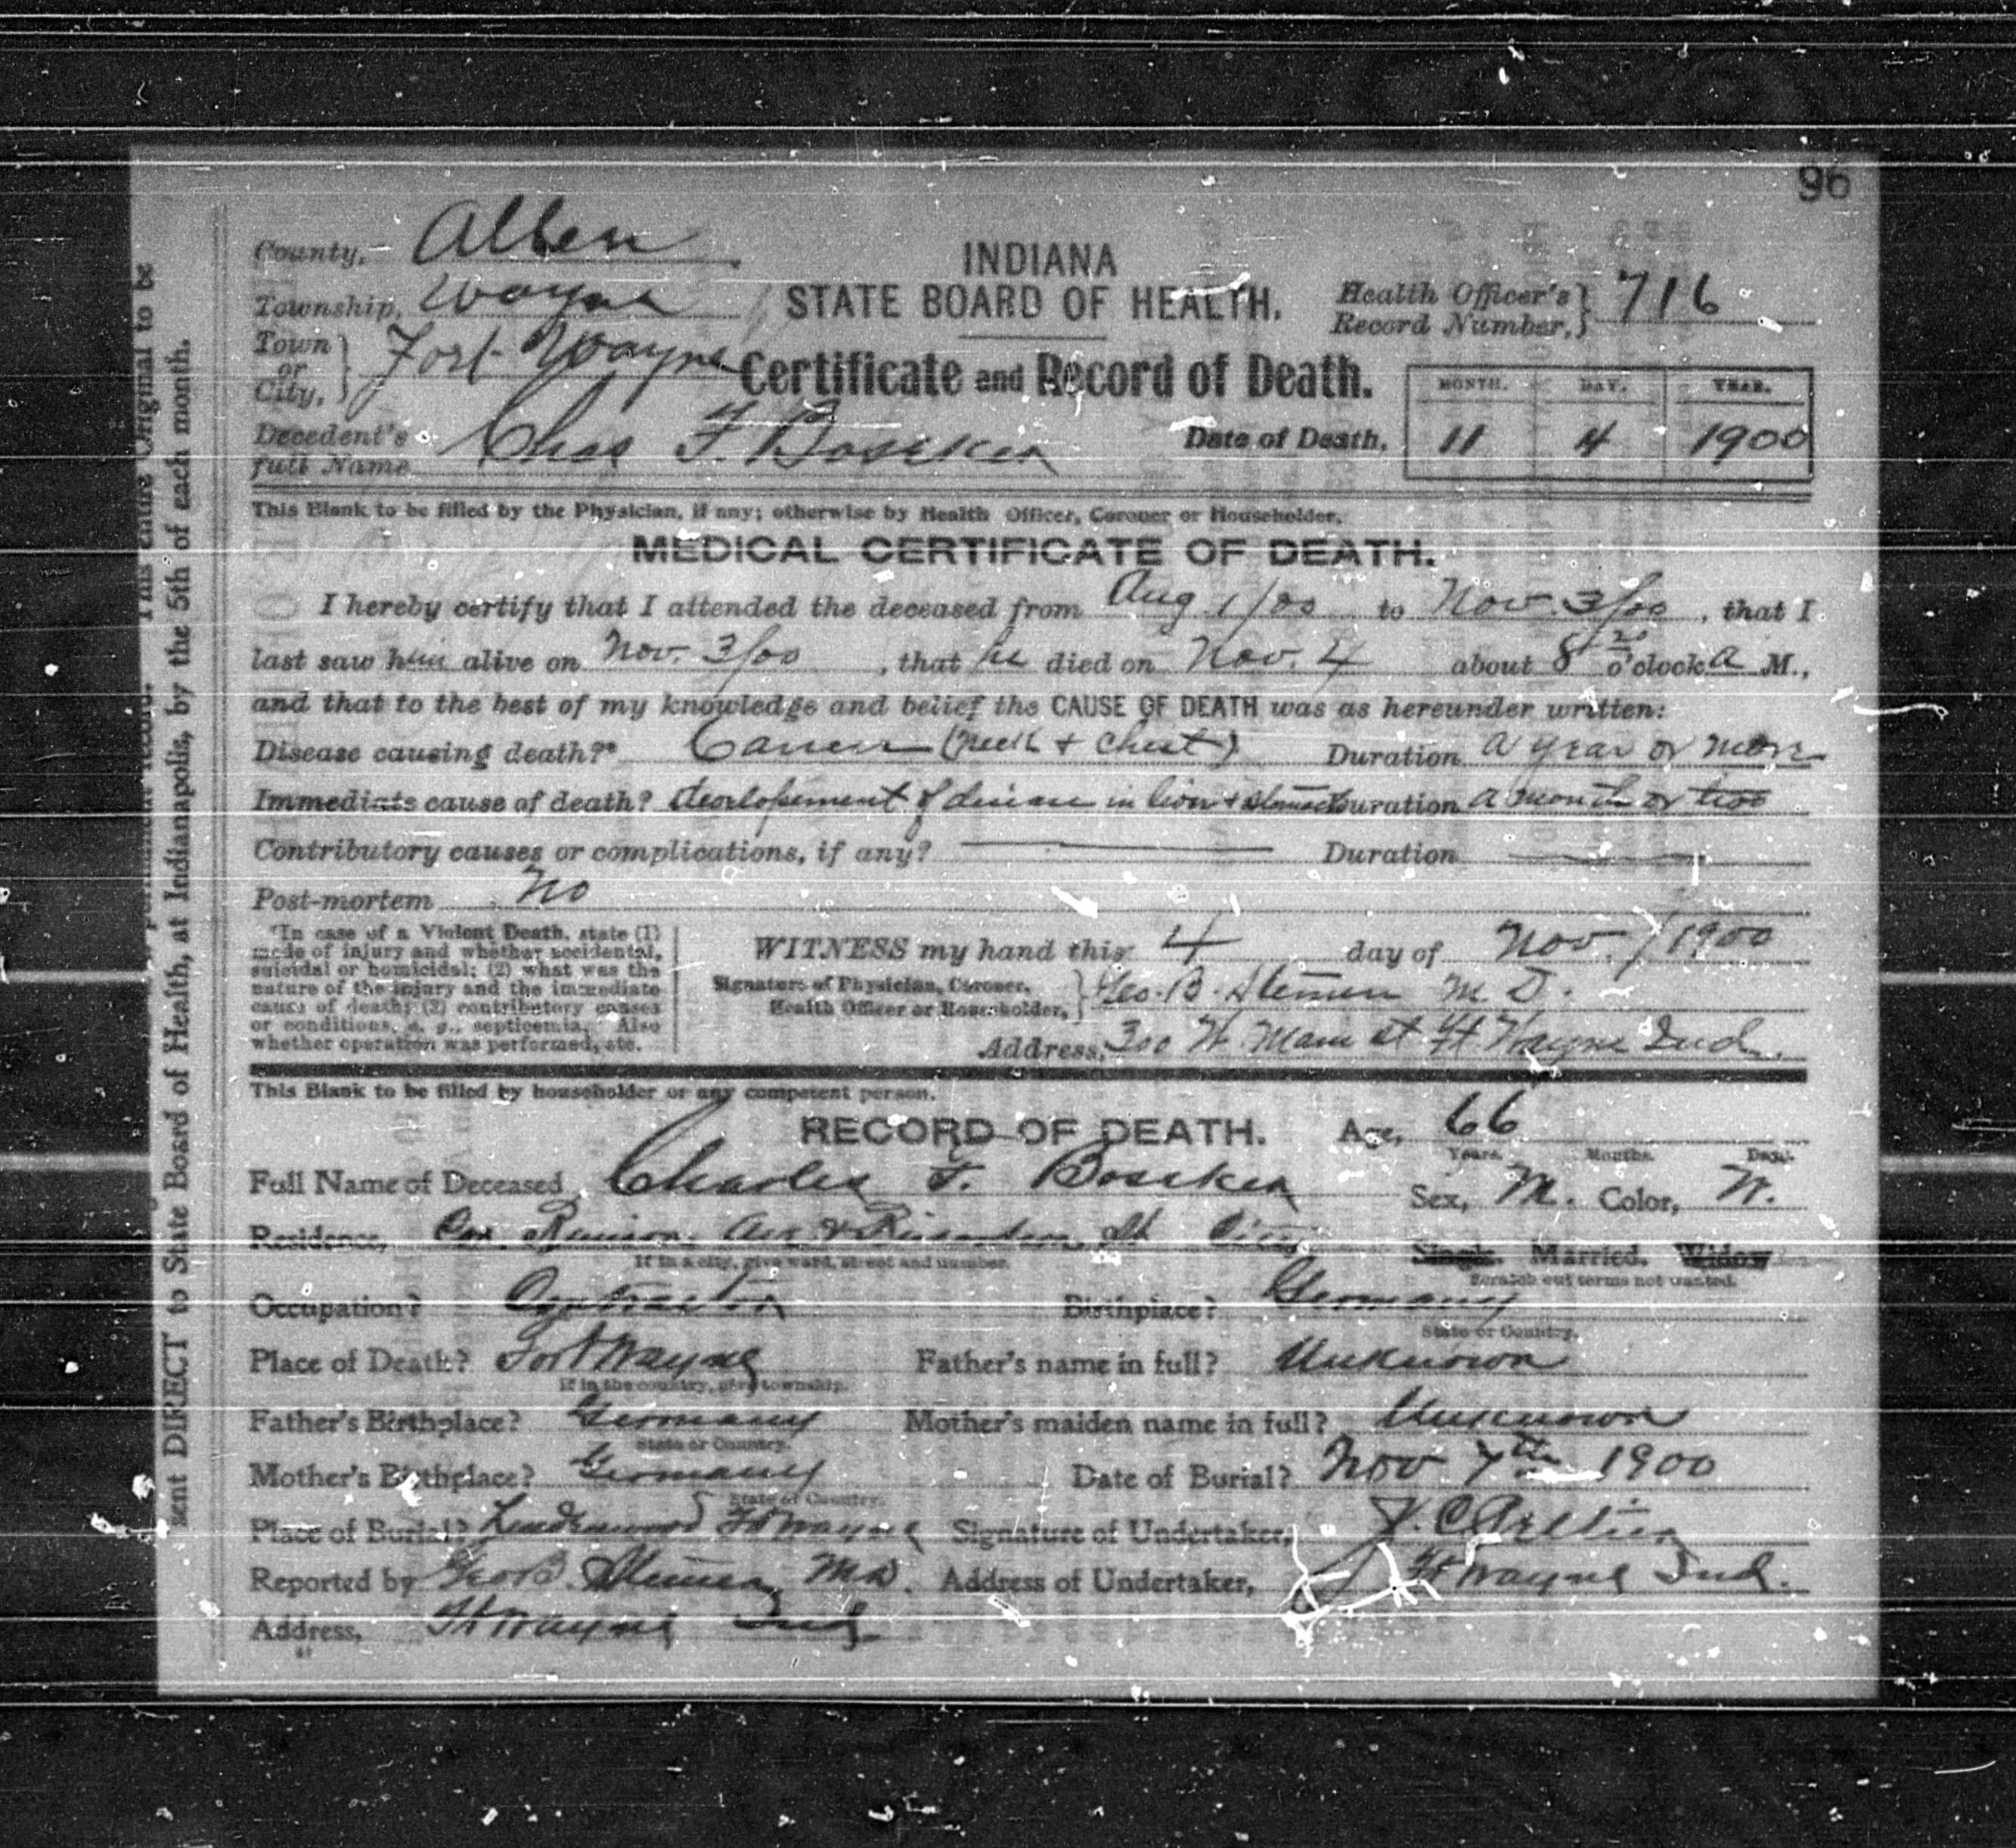 96
County, Allen
Township, Wayne
Town or City, Fort Wayne
INDIANA
STATE BOARD OF HEALTH.
Health Officer's Record Number, 716
Certificate and Record of Death.
Decedent's full Name Chas F. Boseker
Date of Death, MONTH. 11 DAY. 4 YEAR. 1900
This Blank to be filled by the Physician, if any; otherwise by Health Officer, Coroner or Householder.
MEDICAL CERTIFICATE OF DEATH.
I hereby certify that I attended the deceased from Aug 1/00 to Nov. 3/00, that I
last saw him alive on Nov. 3/00, that he died on Nov. 4 about 8 20 o'clock a M.,
and that to the best of my knowledge and belief the CAUSE OF DEATH was as hereunder written:
Disease causing death?* Cancer (neck + chest) Duration a year or more
Immediate cause of death? developement of disease in liver + stomach Duration a month or two
Contributory causes or complications, if any? Duration
Post-mortem no
*In case of a Violent Death, state (1)
mode of injury and whether accidental,
suicidal or homicidal; (2) what was the
nature of the injury and the immediate
cause of death; (3) contributory causes
or conditions, e. g., septicemia. Also
whether operation was performed, etc.
WITNESS my hand this 4 day of Nov. / 1900
Signature of Physician, Coroner, Health Officer or Householder, Geo. B. Stemen M. D.
Address, 300 W. Main st Ft Wayne Ind.
This Blank to be filled by householder or any competent person.
RECORD OF DEATH. Age, 66
Years. Months. Days.
Full Name of Deceased Charles F. Boseker Sex, M. Color, W.
Residence, Cor. Ave & St City Single. Married. Widow
If in a city, give ward, street and number. Scratch out terms not wanted.
Occupation? Contractor Birthplace? Germany
State or Country.
Place of Death? Fort Wayne Father's name in full? Unknown
If in the country, give township.
Father's Birthplace? Germany Mother's maiden name in full? Unknown
State or Country.
Mother's Birthplace? Germany Date of Burial? Nov 7th 1900
State or Country.
Place of Burial? Lindenwood Ft Wayne Signature of Undertaker,
Reported by Geo B. Stemen MD. Address of Undertaker, Ft Wayne Ind.
Address, Ft Wayne Ind.
This entire Original to be
sent DIRECT to State Board of Health, at Indianapolis, by the 5th of each month.